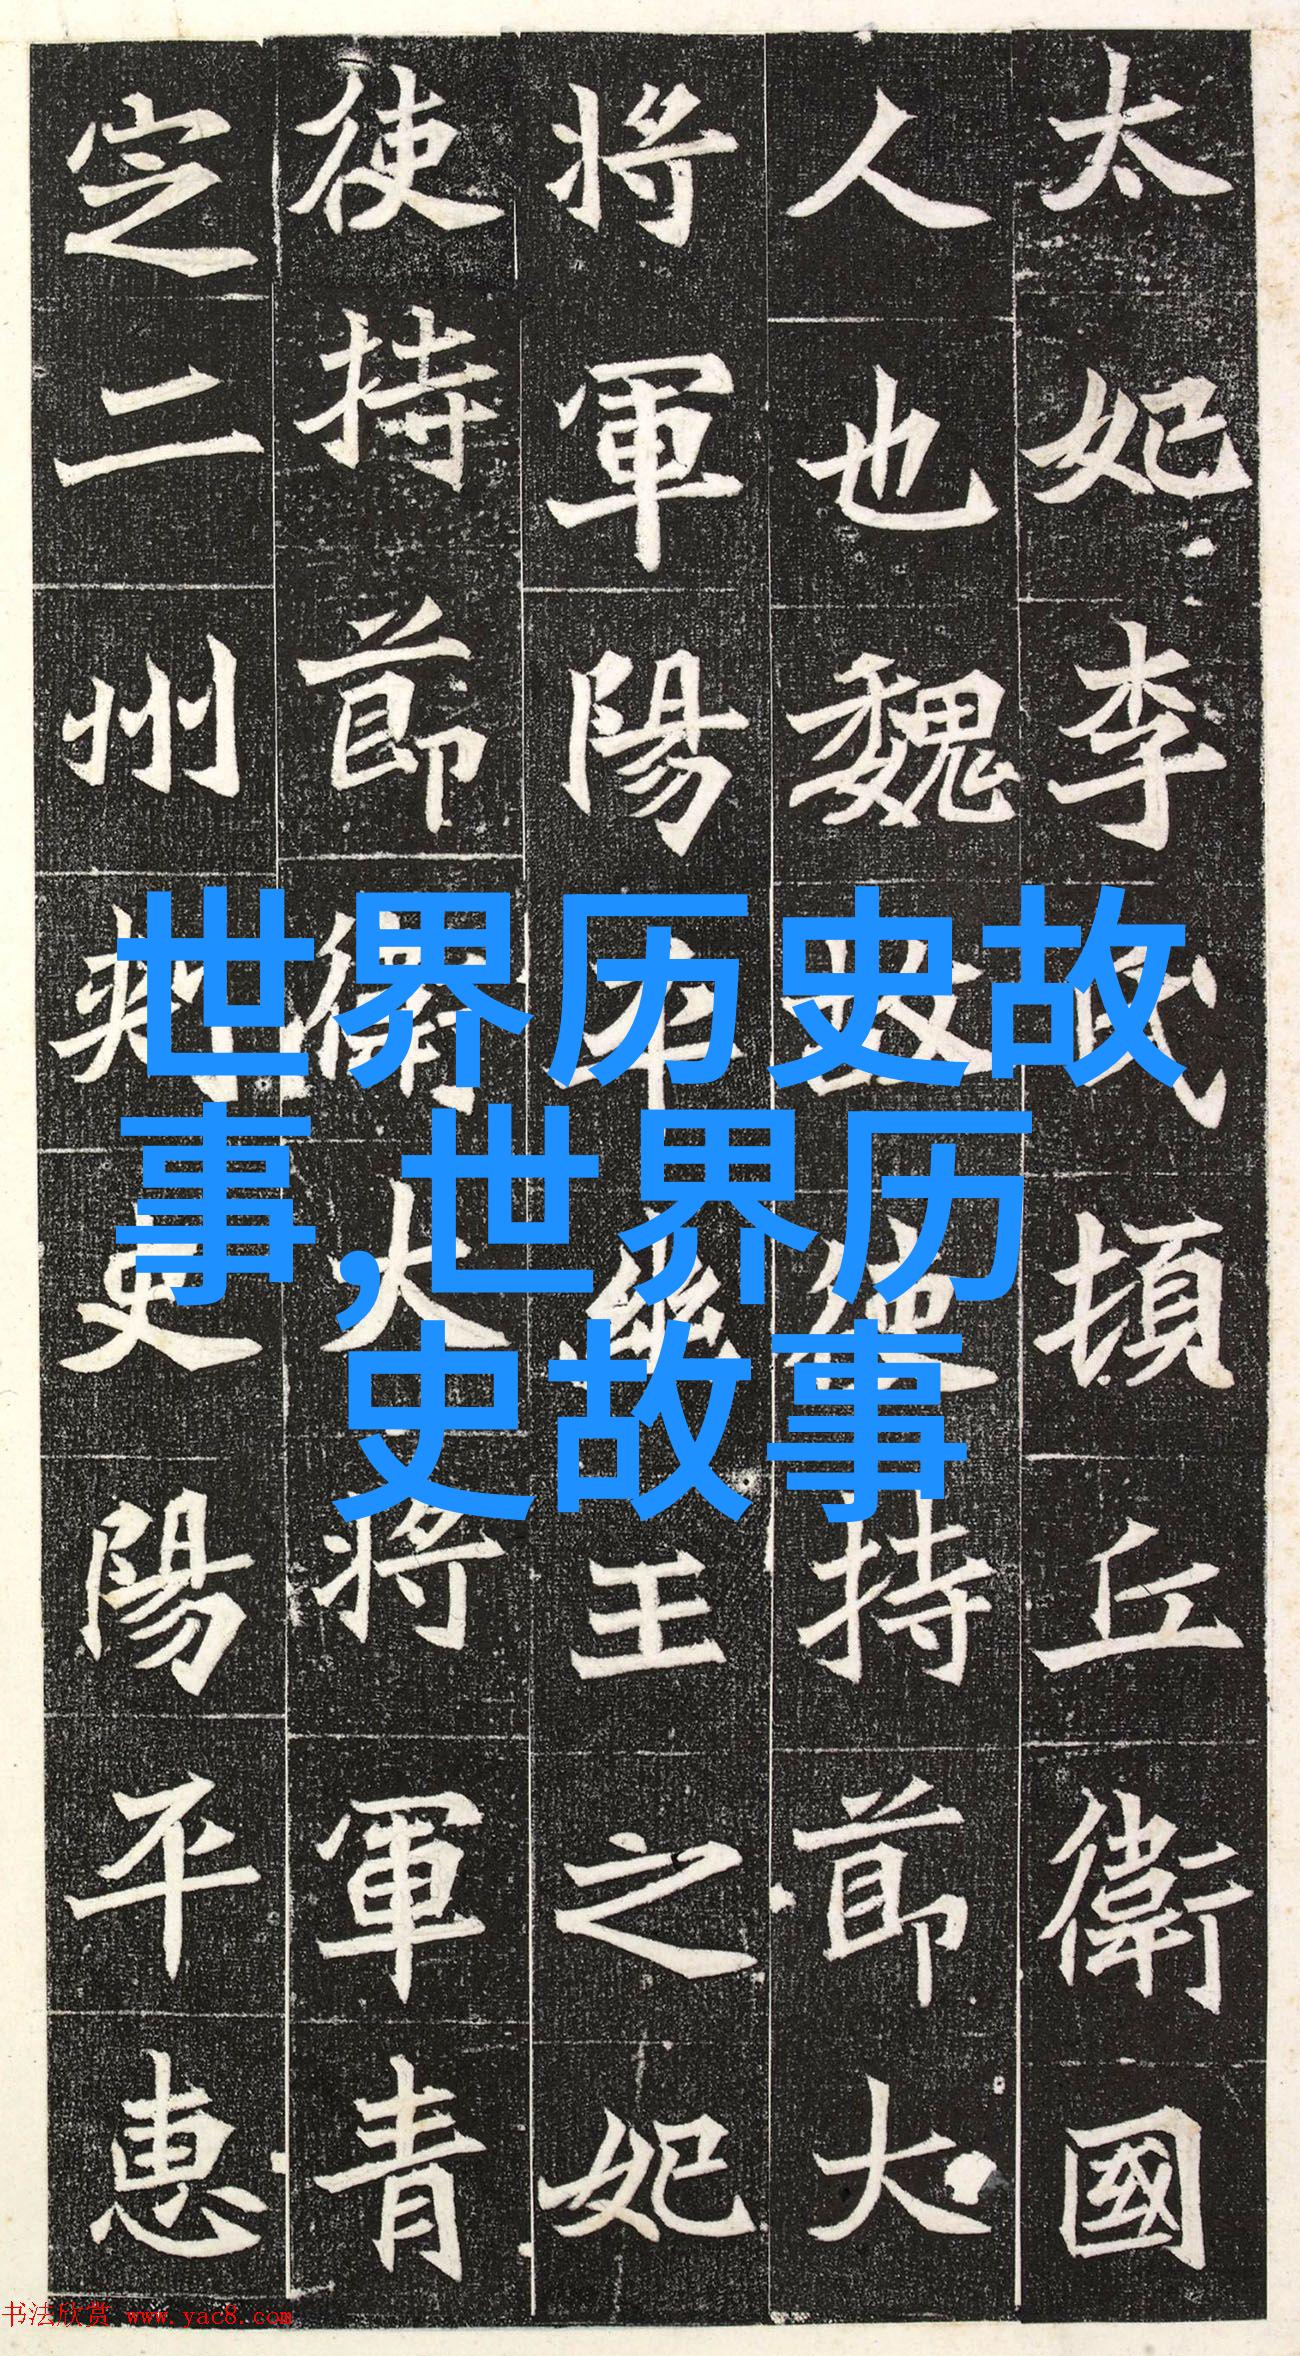 太妃李氏頓丘衛國
人也魏故使持節大
將軍陽平幽王之妃
使持節衛大將軍青
定二州刺史陽平惠
世界历史故
事,世界历
史故事
书法欣赏 www.yac8.com